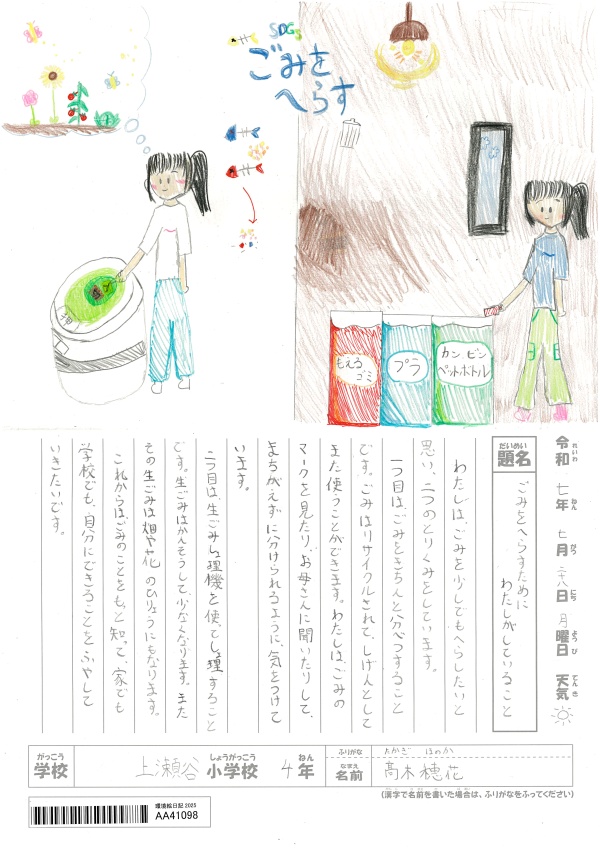 SDGs
ごみを
へらす
押
もえる
ゴミ
プラ
カン・ビン
ペットボトル
令和 七年 七月 二八日 月曜日 天気
れいわ ねん がつ にち ようび てんき
だいめい
題名
ごみをへらすために
わたしがしていること
わたしは、ごみを少しでもへらしたいと
思い、二つのとりくみをしています。
一つ目は、ごみをきちんと分べつすること
です。ごみはリサイクルされて、しげんとして
また使うことができます。わたしは、ごみの
マークを見たり、お母さんに聞いたりして、
まちがえずに分けられるように、気をつけて
います。
二つ目は、生ごみしょ理機を使ってしょ理すること
です。生ごみはかんそうして、少なくなります。また
その生ごみは畑や花のひりょうにもなります。
これからは、ごみのことをもっと知って、家でも
学校でも、自分にできることをふやして
いきたいです。
がっこう
学校
上瀬谷
しょうがっこう
小学校
4年
ねん
ふりがな
たかぎ ほのか
なまえ
名前
髙木穂花
(漢字で名前を書いた場合は、ふりがなをふってください)
環境絵日記 2025
AA41098